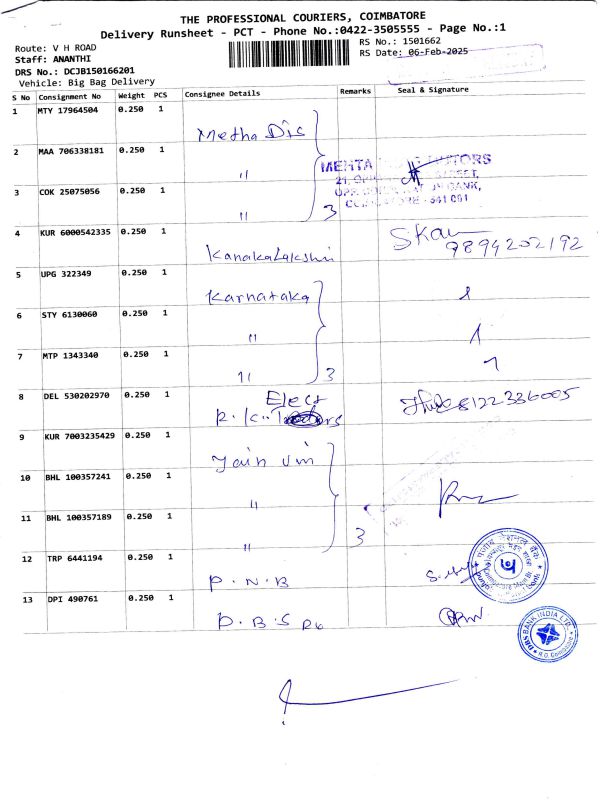 THE PROFESSIONAL COURIERS, COIMBATORE
Delivery Runsheet - PCT - Phone No.:0422-3505555 - Page No.:1
Route: V H ROAD
Staff: ANANTHI
DRS No.: DCJB150166201
Vehicle: Big Bag Delivery
RS No.: 1501662
RS Date: 06-Feb-2025
S No Consignment No Weight PCS Consignee Details Remarks Seal & Signature
1 MTY 17964504 0.250 1 Metha Dis
2 MAA 706338181 0.250 1 "
3 COK 25075056 0.250 1 " 3
MEHTA
COIMBATORE - 641 001
4 KUR 6000542335 0.250 1 Kanakalakshmi
9894202192
5 UPG 322349 0.250 1 Karnataka
6 STY 6130060 0.250 1 "
7 MTP 1343340 0.250 1 " 3
8 DEL 530202970 0.250 1 Elect
R.K. Traders 8122336005
9 KUR 7003235429 0.250 1 Jain
10 BHL 100357241 0.250 1 "
11 BHL 100357189 0.250 1 " 3
12 TRP 6441194 0.250 1 P.N.B
13 DPI 490761 0.250 1 D.B.S
DBS BANK INDIA LTD.